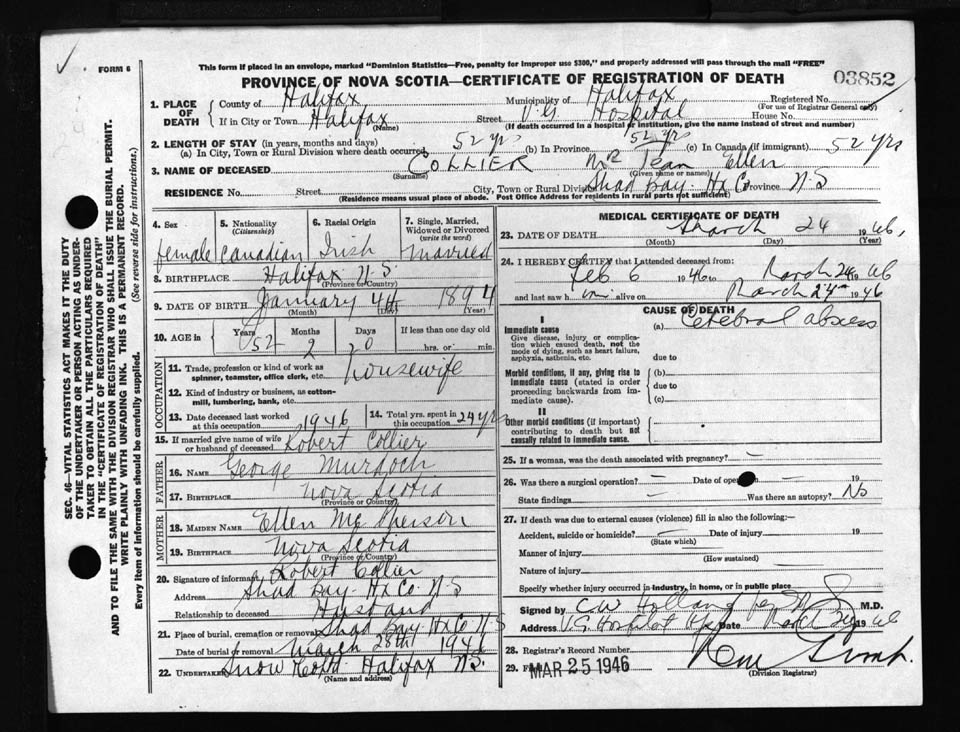 FORM 6
This form if placed in an envelope, marked "Dominion Statistics—Free, penalty for improper use $300," and properly addressed will pass through the mail "FREE"
PROVINCE OF NOVA SCOTIA—CERTIFICATE OF REGISTRATION OF DEATH
03852
1. PLACE OF DEATH
County of Halifax Municipality of Halifax Registered No.
(For use of Registrar General only)
If in City or Town Halifax Street V.G. Hospital House No.
(Name) (If death occurred in a hospital or institution, give the name instead of street and number)
2. LENGTH OF STAY (in years, months and days)
(a) In City, Town or Rural Division where death occurred 52 yrs (b) In Province 52 yrs (c) In Canada (if immigrant) 52 yrs
3. NAME OF DECEASED COLLIER Jean Ellen
(Surname) (Given name or names)
RESIDENCE No. Street City, Town or Rural Division Shad Bay Hx Co Province N.S
(Residence means usual place of abode. Post Office Address for residents in rural parts not sufficient)
SEC. 46—VITAL STATISTICS ACT MAKES IT THE DUTY
OF THE UNDERTAKER OR PERSON ACTING AS UNDER-
TAKER TO OBTAIN ALL THE PARTICULARS REQUIRED
IN THE "CERTIFICATE OF REGISTRATION OF DEATH"
AND TO FILE THE SAME WITH THE DIVISION REGISTRAR WHO SHALL ISSUE THE BURIAL PERMIT.
WRITE PLAINLY WITH UNFADING INK. THIS IS A PERMANENT RECORD.
Every item of information should be carefully supplied. (See reverse side for instructions.)
4. Sex female
5. Nationality (Citizenship) Canadian
6. Racial Origin Irish
7. Single, Married, Widowed or Divorced (write the word) Married
8. BIRTHPLACE Halifax N.S.
(Province or Country)
9. DATE OF BIRTH January 4th 1894
(Month) (Day) (Year)
10. AGE in Years 52 Months 2 Days 20 If less than one day old hrs. or min.
OCCUPATION
11. Trade, profession or kind of work as spinner, teamster, office clerk, etc. housewife
12. Kind of industry or business, as cotton-mill, lumbering, bank, etc.
13. Date deceased last worked at this occupation 1946
14. Total yrs. spent in this occupation 24 yrs
15. If married give name of wife or husband of deceased Robert Collier
FATHER
16. NAME George Murdoch
17. BIRTHPLACE Nova Scotia
(Province or Country)
MOTHER
18. MAIDEN NAME Ellen Mc Pherson
19. BIRTHPLACE Nova Scotia
(Province or Country)
20. Signature of informant Robert Collier
Address Shad Bay Hx Co. N.S
Relationship to deceased Husband
21. Place of burial, cremation or removal Shad Bay Hx Co N.S
Date of burial or removal March 28th 1946
22. UNDERTAKER Snow Halifax N.S.
(Name and address)
MEDICAL CERTIFICATE OF DEATH
23. DATE OF DEATH March 24 1946
(Month) (Day) (Year)
24. I HEREBY CERTIFY that I attended deceased from
Feb 6 1946 to March 24 1946
and last saw h alive on March 24 1946
CAUSE OF DEATH
I
Immediate cause (a) Cerebral abscess
Give disease, injury or complication which caused death, not the mode of dying, such as heart failure, asphyxia, asthenia, etc. due to
Morbid conditions, if any, giving rise to immediate cause (stated in order proceeding backwards from immediate cause). (b) due to (c)
II
Other morbid conditions (if important) contributing to death but not causally related to immediate cause.
25. If a woman, was the death associated with pregnancy? —
26. Was there a surgical operation? — Date of operation — 19
State findings — Was there an autopsy? No
27. If death was due to external causes (violence) fill in also the following:—
Accident, suicide or homicide? Date of injury 19
(State which)
Manner of injury
(How sustained)
Nature of injury
Specify whether injury occurred in industry, in home, or in public place
Signed by C.W. Holland M.D.
Address V.G. Hospital Date March 1946
28. Registrar's Record Number
29. MAR 25 1946
(Division Registrar)